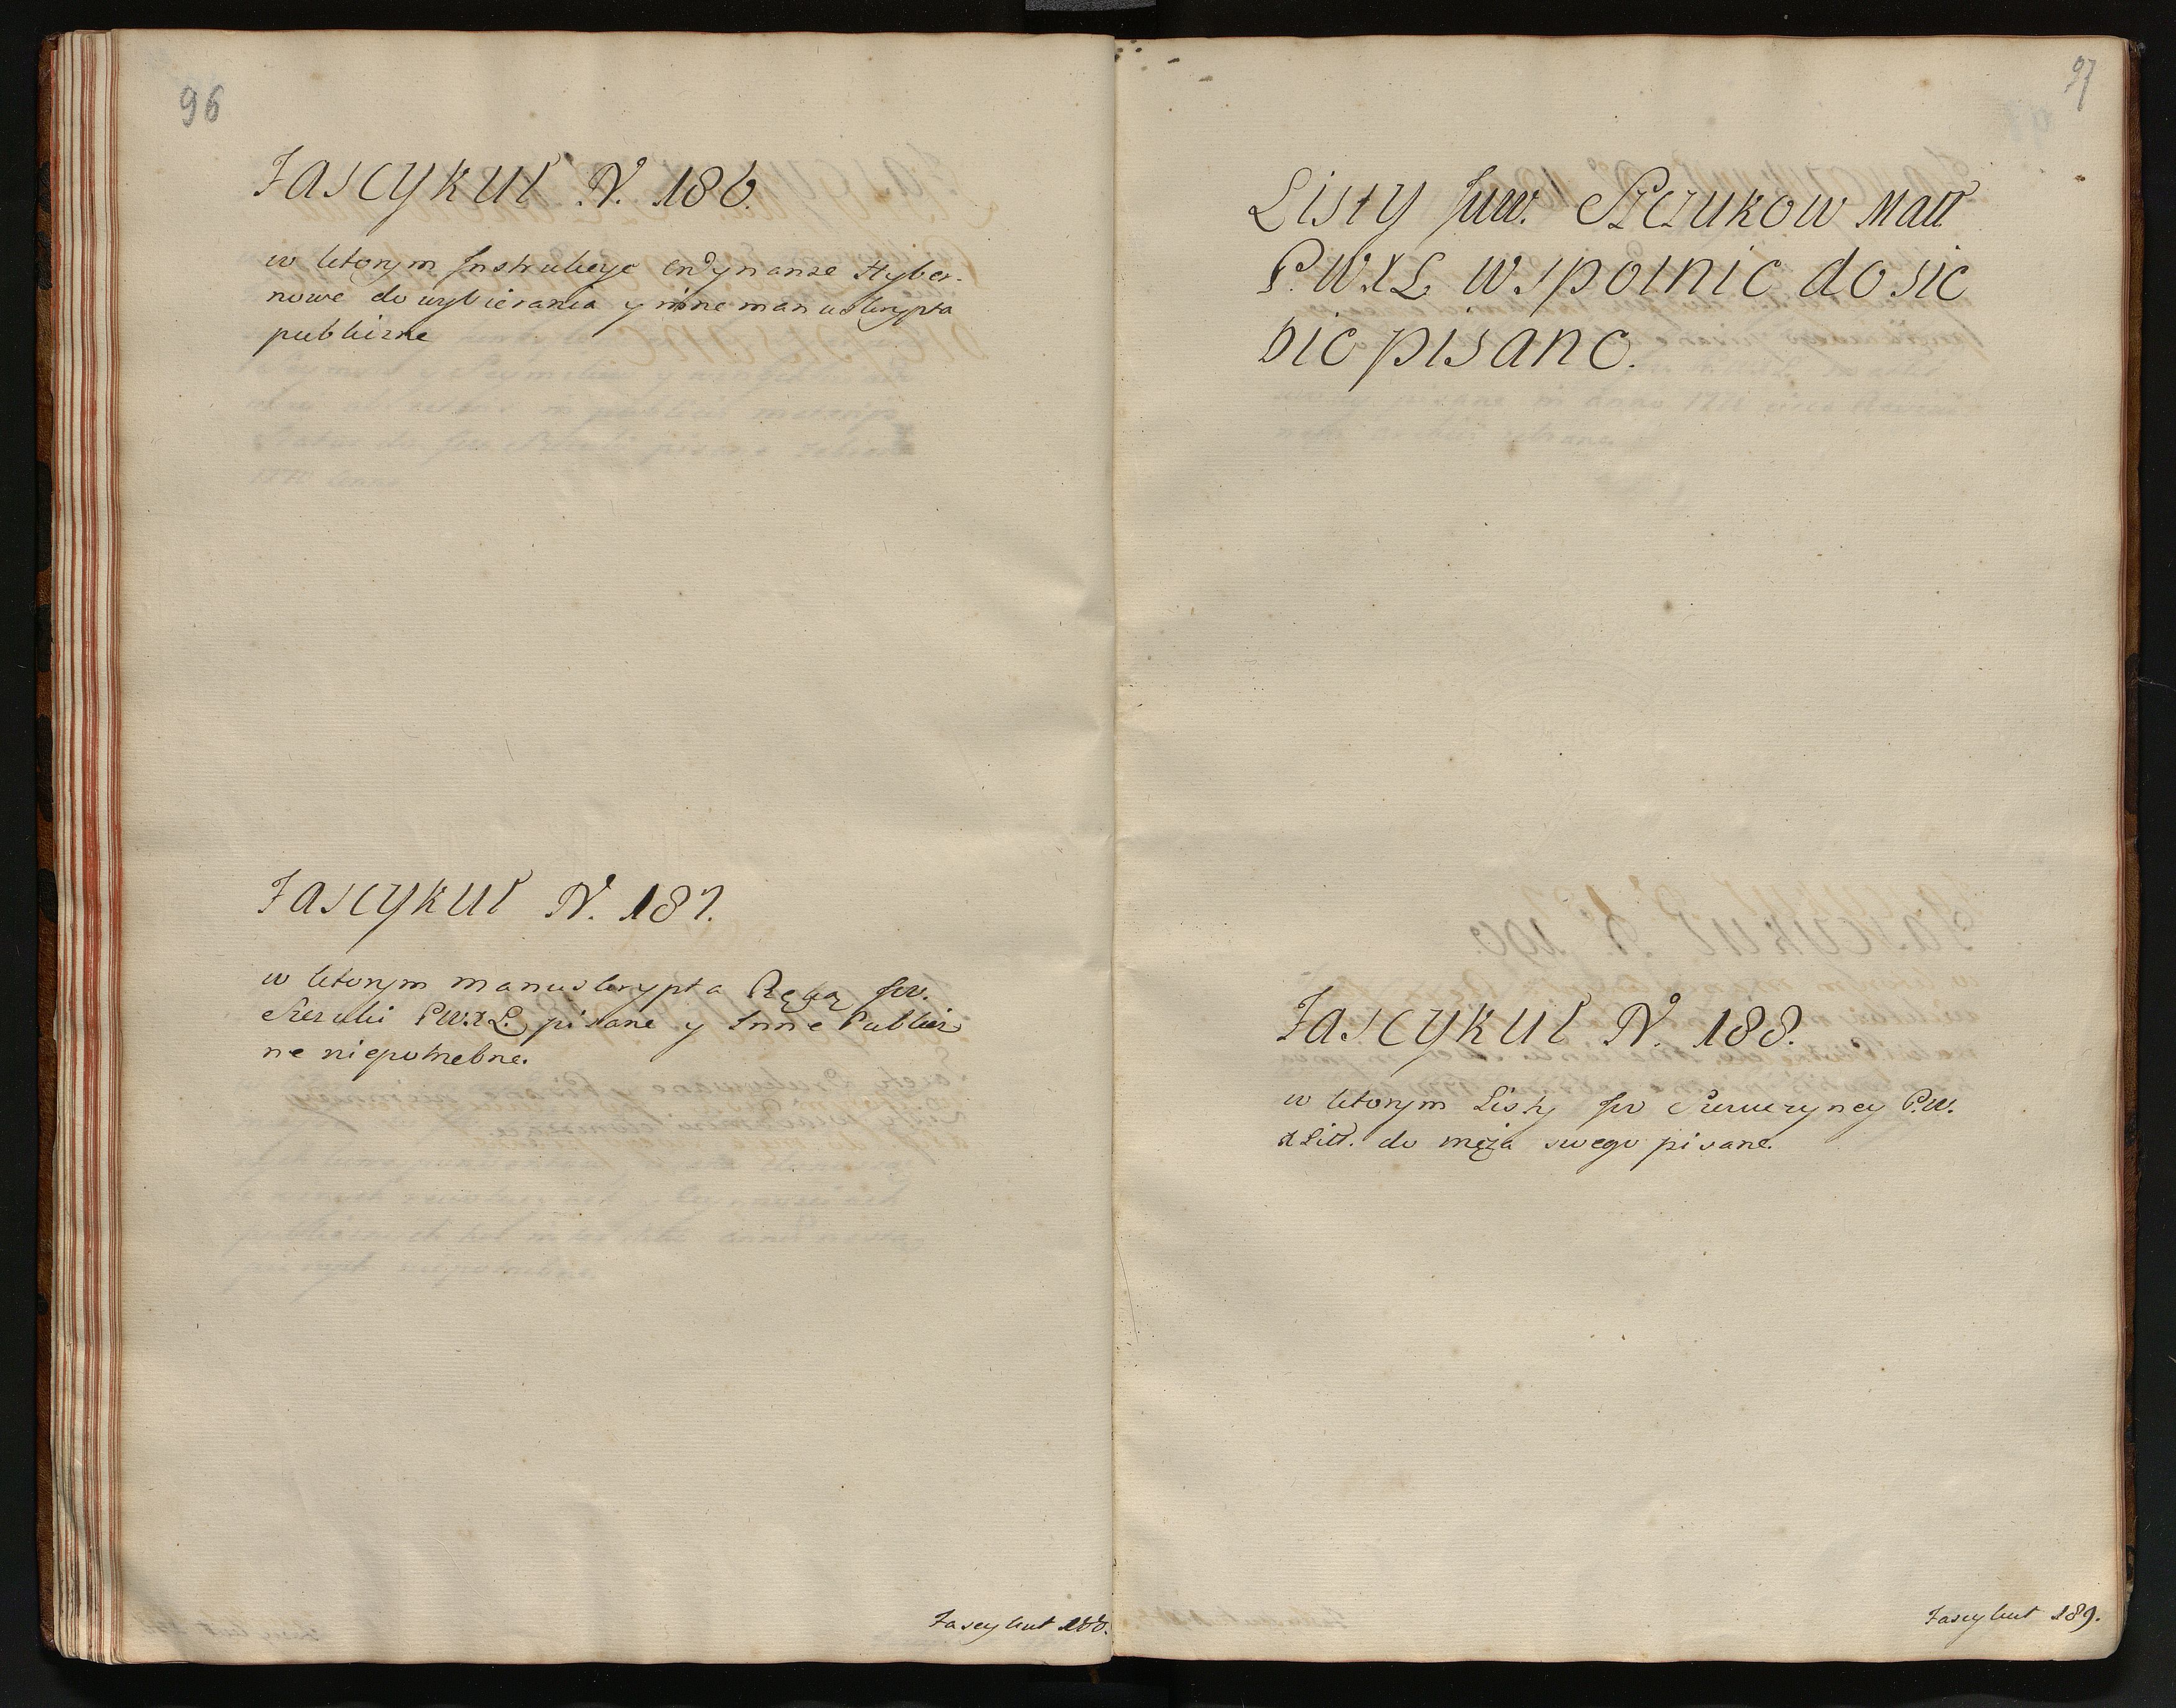 96
Fascykuł N. 186.
w ktorym Instrukcye Ordynanse Hyber-
nowe do wybierania y inne manuskrypta
publiczne
Fascykuł N. 187.
w ktorym manuskrypta Ręką Jw.
Szczuki P.W.X.L. pisane y Inne Publicz
ne niepotrzebne.
Fascykuł 188.
97
Listy Juw. Szczukow Matt
P.W.X.L. wspolnie do sie
bie pisane.
Fascykuł N. 188.
w ktorym Listy Jw Szczuczyney P.W.
X Litt. do męża swego pisane.
Fascykuł 189.